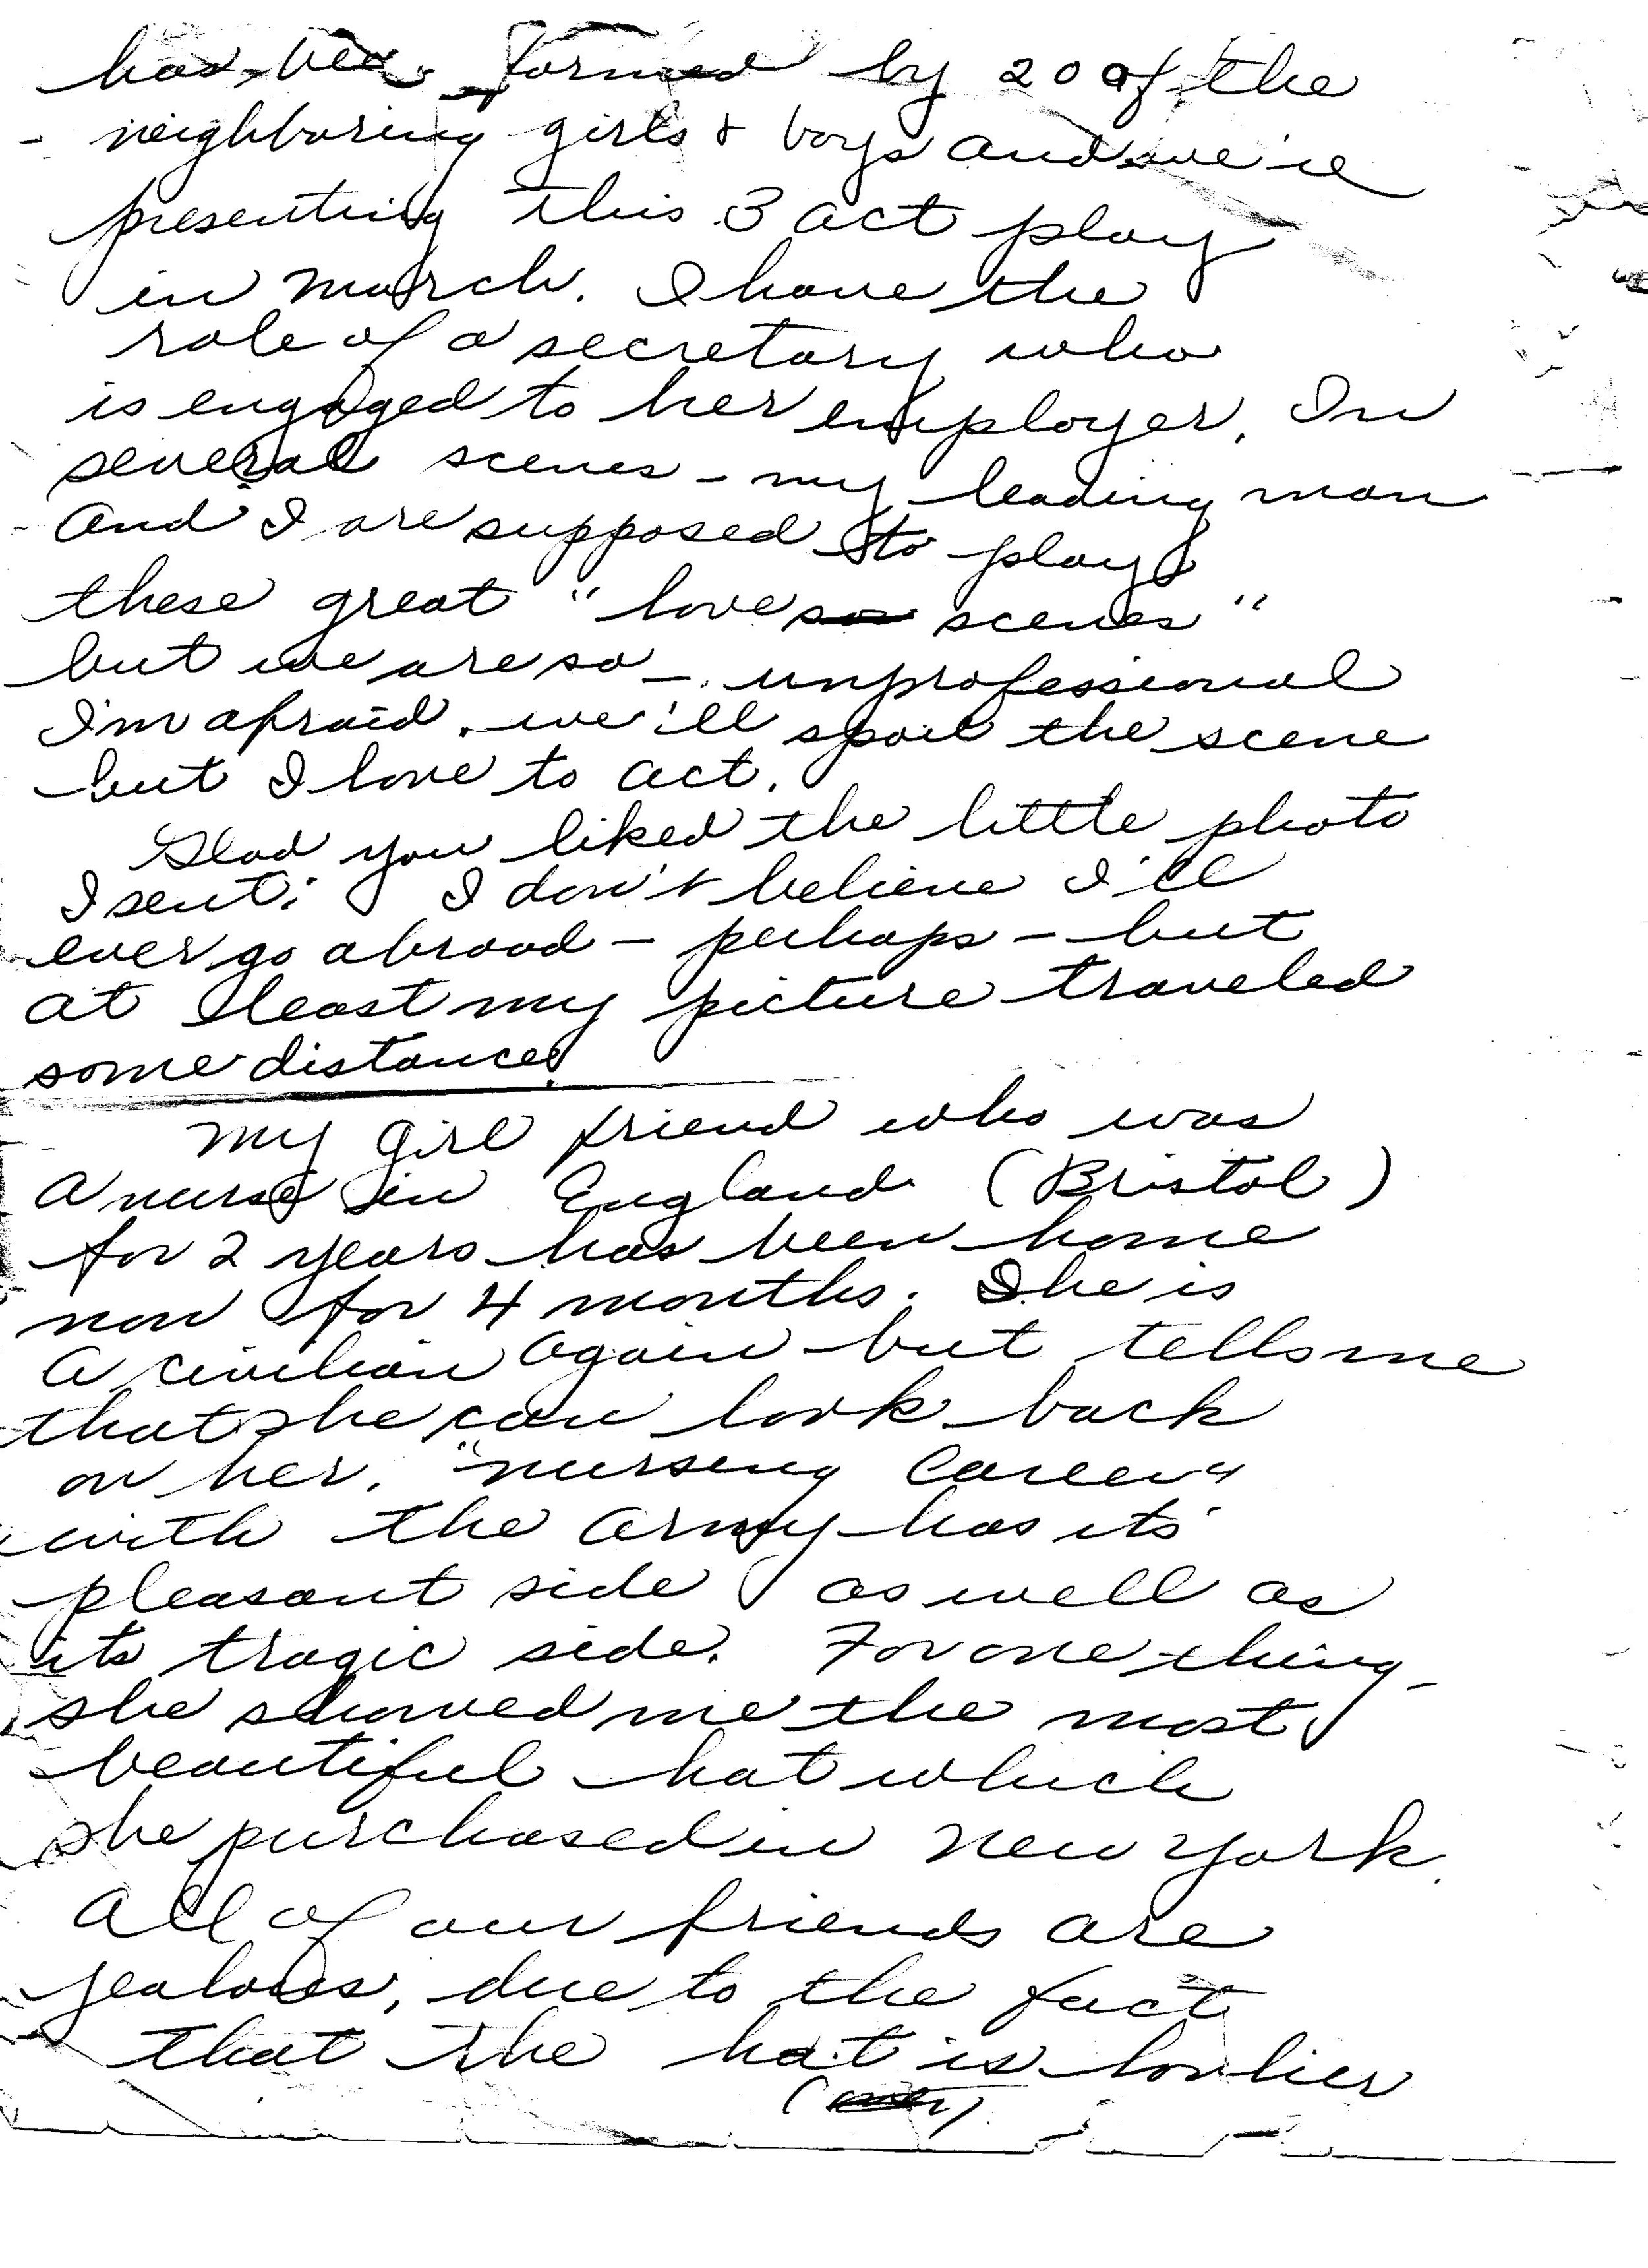 has been formed by 20 of the
neighboring girls & boys and we're
presenting this 3 act play
in March. I have the
role of a secretary who
is engaged to her employer. In
several scenes - my leading man
and I are supposed to play
these great "love scenes"
but we are so - unprofessional
I'm afraid we'll spoil the scene
but I love to act.
Glad you liked the little photo
I sent. I don't believe I'll
ever go abroad - perhaps - but
at least my picture traveled
some distance!
My girl friend who was
a nurse in England (Bristol)
for 2 years has been home
now for 4 months. She is
a civilian again but tells me
that she can look back
on her "nursing career"
with the army has its
pleasant side as well as
its tragic side. For one thing -
she showed me the most
beautiful hat which
she purchased in New York.
All of our friends are
jealous, due to the fact
that the hat is lovlier
(over)